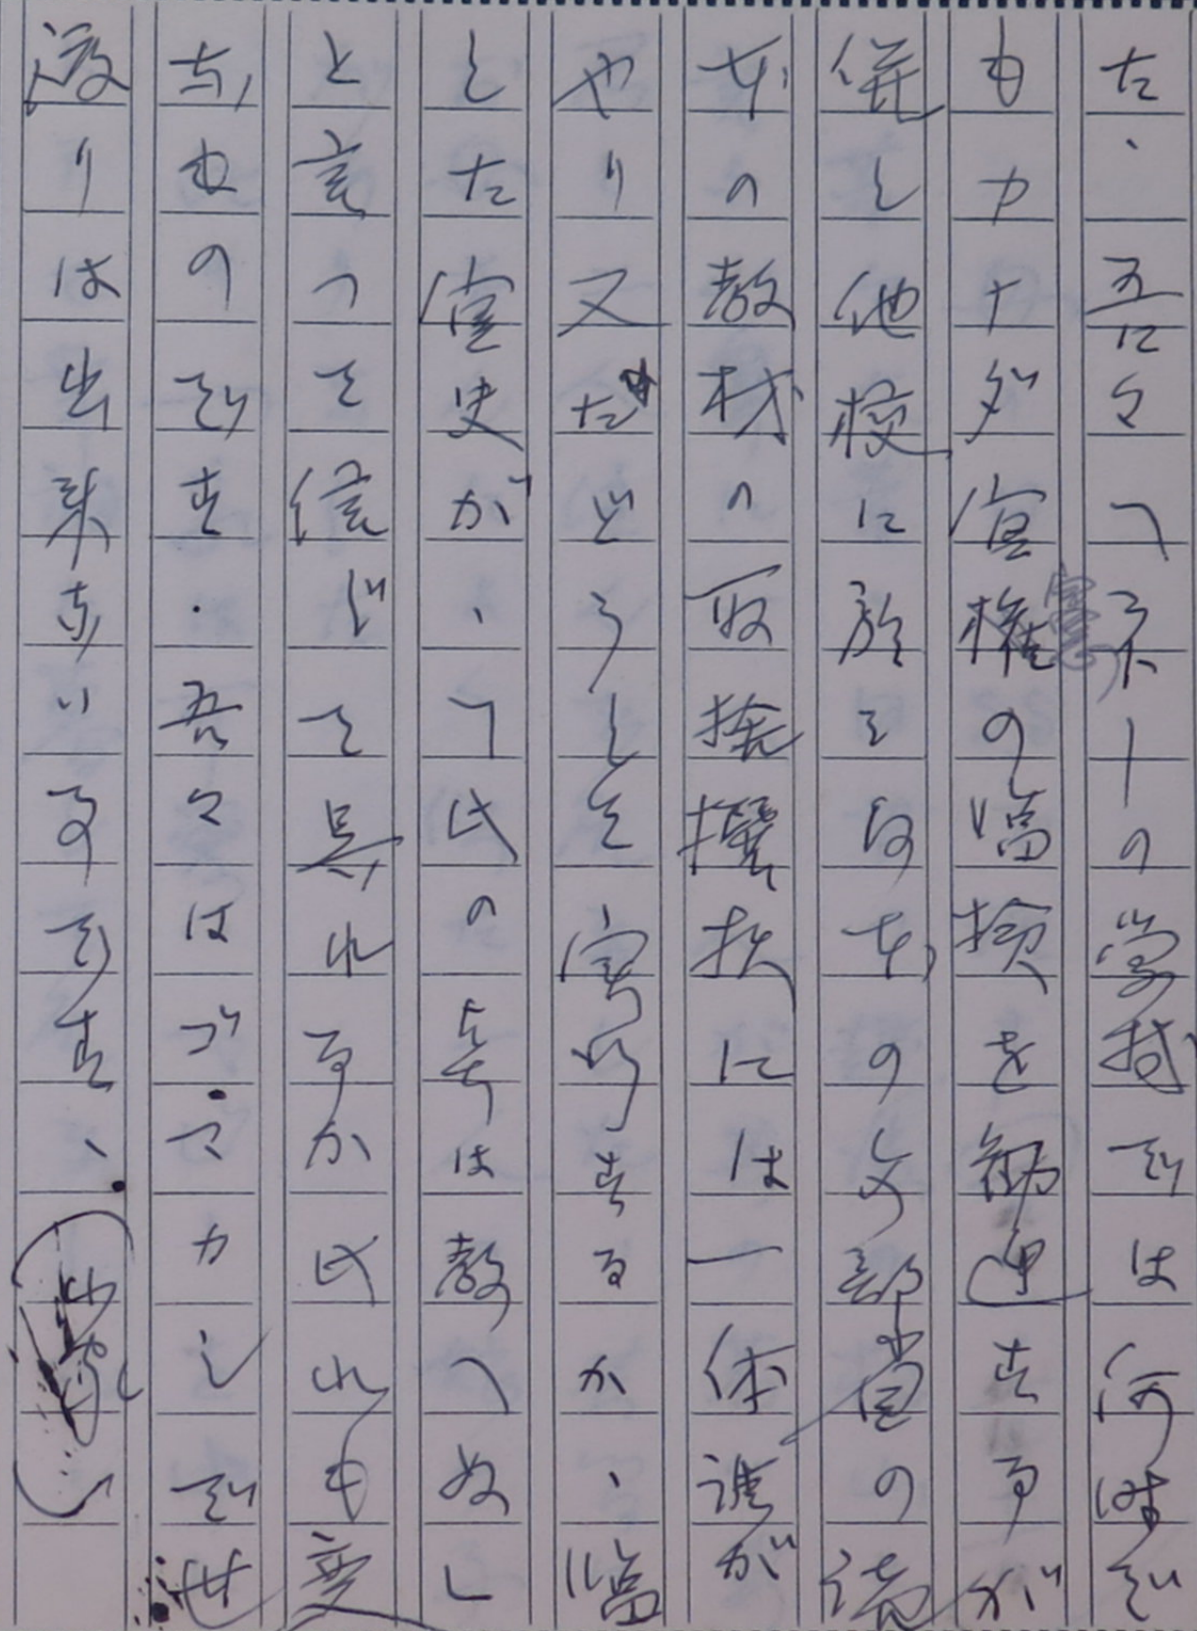 の学校では何時で
もカナダ官権の臨検を勧迎するが
併し他校に於る日本の文部省の読
本の教材の取捨撰択には一体誰が
やり又どうして実行するか、臨
した官吏が、「此の本は教へぬ」
と言って信じて呉れるか此れも変
なものです・吾々はゴマカシで世
渡りは出来ない事です、